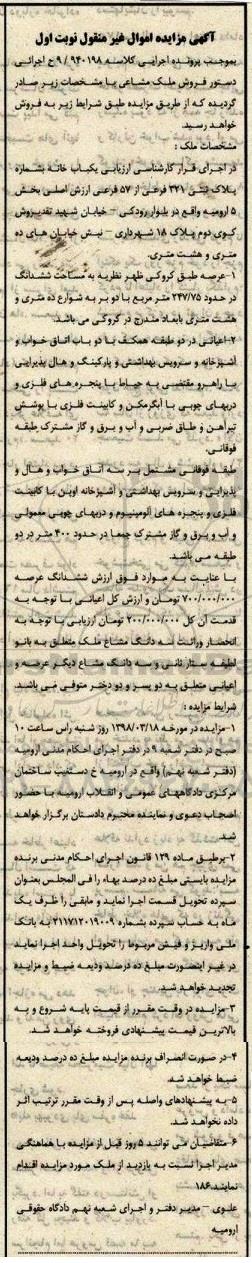 آگهی مزایده اموال غیر منقول نوبت اول
بموجب پرونده اجرایی کلاسه ۹/۹۴۰۱۹۸ ح اجرائی
دستور فروش ملک مشاعی با مشخصات زیر صادر
گردیده که از طریق مزایده طبق شرایط زیر به فروش
خواهد رسید.
مشخصات ملک :
در اجرای قرار کارشناسی ارزیابی یکباب خانه بشماره
پلاک ثبتی ۳۲۱ فرعی از ۵۷ فرعی ارزش اصلی بخش
۵ ارومیه واقع در بلوار رودکی – خیابان شهید تقدیزوش
کوی دوم پلاک ۱۸ شهرداری – نبش خیابان های ده
متری و هشت متری.
۱-عرصه طبق کروکی ظهر نظریه به مساحت ششدانگ
در حدود ۲۴۷/۷۵ متر مربع با دو بر به شوارع ده متری و
هشت متری بابعاد مندرج در کروکی می باشد.
۲-اعیانی در دو طبقه همکف با دو باب اتاق خواب و
آشپزخانه و سرویس بهداشتی و پارکینگ و هال پذیرایی
با راهرو مقتضی به حیاط با پنجره های فلزی و
دربهای چوبی با آبگرمکن و کابینت فلزی با پوشش
تیرآهن و طاق ضربی و آب و برق و گاز مشترک طبقه
فوقانی.
طبقه فوقانی مشتمل بر سه اتاق خواب و هال و
پذیرایی و سرویس بهداشتی و آشپزخانه اوپن با کابینت
فلزی و پنجره های آلومینیوم و دربهای چوبی معمولی
و آب و برق و گاز مشترک جمعا در حدود ۴۰۰ متر در دو
طبقه می باشد.
با عنایت به موارد فوق ارزش ششدانگ عرصه
۷۰۰/۰۰۰/۰۰۰ تومان و ارزش کل اعیانی با توجه به
قدمت آن کل ۲۰۰/۰۰۰/۰۰۰ تومان ارزیابی با توجه به
انحصار وراثت سه دانگ مشاع ملک متعلق به بانو
لطیفه ستار نانی و سه دانگ مشاع دیگر عرصه و
اعیانی متعلق به دو پسر و دو دختر متوفی می باشد.
شرایط مزایده :
۱-مزایده در مورخه ۱۳۹۸/۰۳/۱۸ روز شنبه راس ساعت ۱۰
صبح در دفتر شعبه ۹ در دفتر اجرای احکام مدنی ارومیه
(دفتر شعبه نهم) واقع در ارومیه خ دستغیب ساختمان
مرکزی دادگاههای عمومی و انقلاب ارومیه با حضور
اصحاب دعوی و نماینده محترم دادستان برگزار خواهد
شد.
۲-برطبق ماده ۱۲۹ قانون اجرای احکام مدنی برنده
مزایده بایستی مبلغ ده درصد بهاء را فی المجلس بعنوان
سپرده تحویل قسمت اجرا نماید و مابقی را ظرف یک
ماه به حساب سپرده بشماره ۲۱۱۷۱۲۰۱۹۰۰۹ به بانک
ملی واریز و فیش مربوط را تحویل واحد اجرا نماید
در غیر اینصورت مبلغ ده درصد ودیعه ضبط و مزایده
تجدید خواهد شد.
۳-مزایده در وقت مقرر از قیمت پایه شروع و به
بالاترین قیمت پیشنهادی فروخته خواهد شد.
۴-در صورت انصراف برنده مزایده مبلغ ده درصد ودیعه
ضبط خواهد شد.
۵-به پیشنهادهای واصله پس از وقت مقرر ترتیب اثر
داده نخواهد شد.
۶-متقاضیان می توانند ۵ روز قبل از مزایده با هماهنگی
مدیر اجرا نسبت به بازدید از ملک مورد مزایده اقدام
نمایند.۱۸۶
علوی – مدیر دفتر و اجرای شعبه نهم دادگاه حقوقی
ارومیه